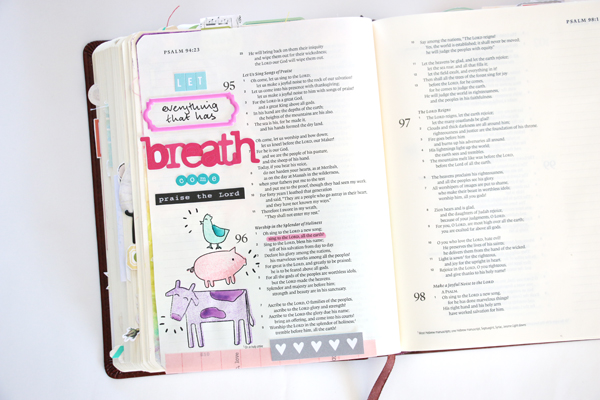 PSALM 94:23
LET
everything
that has
breath
come
praise the Lord
23 He will bring back on them their iniquity
and wipe them out for their wickedness;
the LORD our God will wipe them out.
Let Us Sing Songs of Praise
95 Oh come, let us sing to the LORD;
let us make a joyful noise to the rock of our salvation!
2 Let us come into his presence with thanksgiving;
let us make a joyful noise to him with songs of praise!
3 For the LORD is a great God,
and a great King above all gods.
4 In his hand are the depths of the earth;
the heights of the mountains are his also.
5 The sea is his, for he made it,
and his hands formed the dry land.
6 Oh come, let us worship and bow down;
let us kneel before the LORD, our Maker!
7 For he is our God,
and we are the people of his pasture,
and the sheep of his hand.
Today, if you hear his voice,
8 do not harden your hearts, as at Meribah,
as on the day at Massah in the wilderness,
9 when your fathers put me to the test
and put me to the proof, though they had seen my work.
10 For forty years I loathed that generation
and said, "They are a people who go astray in their heart,
and they have not known my ways."
11 Therefore I swore in my wrath,
"They shall not enter my rest."
Worship in the Splendor of Holiness
96 Oh sing to the LORD a new song;
sing to the LORD, all the earth!
2 Sing to the LORD, bless his name;
tell of his salvation from day to day.
3 Declare his glory among the nations,
his marvelous works among all the peoples!
4 For great is the LORD, and greatly to be praised;
he is to be feared above all gods.
5 For all the gods of the peoples are worthless idols,
but the LORD made the heavens.
6 Splendor and majesty are before him;
strength and beauty are in his sanctuary.
7 Ascribe to the LORD, O families of the peoples,
ascribe to the LORD glory and strength!
8 Ascribe to the LORD the glory due his name;
bring an offering, and come into his courts!
9 Worship the LORD in the splendor of holiness;
tremble before him, all the earth!
PSALM 98:1
10 Say among the nations, "The LORD reigns!
Yes, the world is established; it shall never be moved;
he will judge the peoples with equity."
11 Let the heavens be glad, and let the earth rejoice;
let the sea roar, and all that fills it;
12 let the field exult, and everything in it!
Then shall all the trees of the forest sing for joy
13 before the LORD, for he comes,
for he comes to judge the earth.
He will judge the world in righteousness,
and the peoples in his faithfulness.
The LORD Reigns
97 The LORD reigns, let the earth rejoice;
let the many coastlands be glad!
2 Clouds and thick darkness are all around him;
righteousness and justice are the foundation of his throne.
3 Fire goes before him
and burns up his adversaries all around.
4 His lightnings light up the world;
the earth sees and trembles.
5 The mountains melt like wax before the LORD,
before the Lord of all the earth.
6 The heavens proclaim his righteousness,
and all the peoples see his glory.
7 All worshipers of images are put to shame,
who make their boast in worthless idols;
worship him, all you gods!
8 Zion hears and is glad,
and the daughters of Judah rejoice,
because of your judgments, O LORD.
9 For you, O LORD, are most high over all the earth;
you are exalted far above all gods.
10 O you who love the LORD, hate evil!
He preserves the lives of his saints;
he delivers them from the hand of the wicked.
11 Light is sown for the righteous,
and joy for the upright in heart.
12 Rejoice in the LORD, O you righteous,
and give thanks to his holy name!
Make a Joyful Noise to the LORD
A PSALM.
98 Oh sing to the LORD a new song,
for he has done marvelous things!
His right hand and his holy arm
have worked salvation for him.